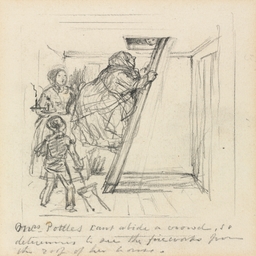 Mrs. Pottles can't abide a crowd, so
determines to see the fireworks from
the roof of her house.